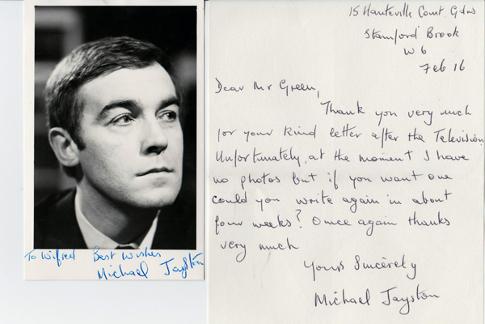 To Wilfred Best Wishes
Michael Jayston
15 Hauteville Court Gdns
Stamford Brook
W 6
Feb 16
Dear Mr Green,
Thank you very much
for your kind letter after the Television.
Unfortunately, at the moment I have
no photos but if you want one
could you write again in about
four weeks? Once again thanks
very much
Yours Sincerely
Michael Jayston